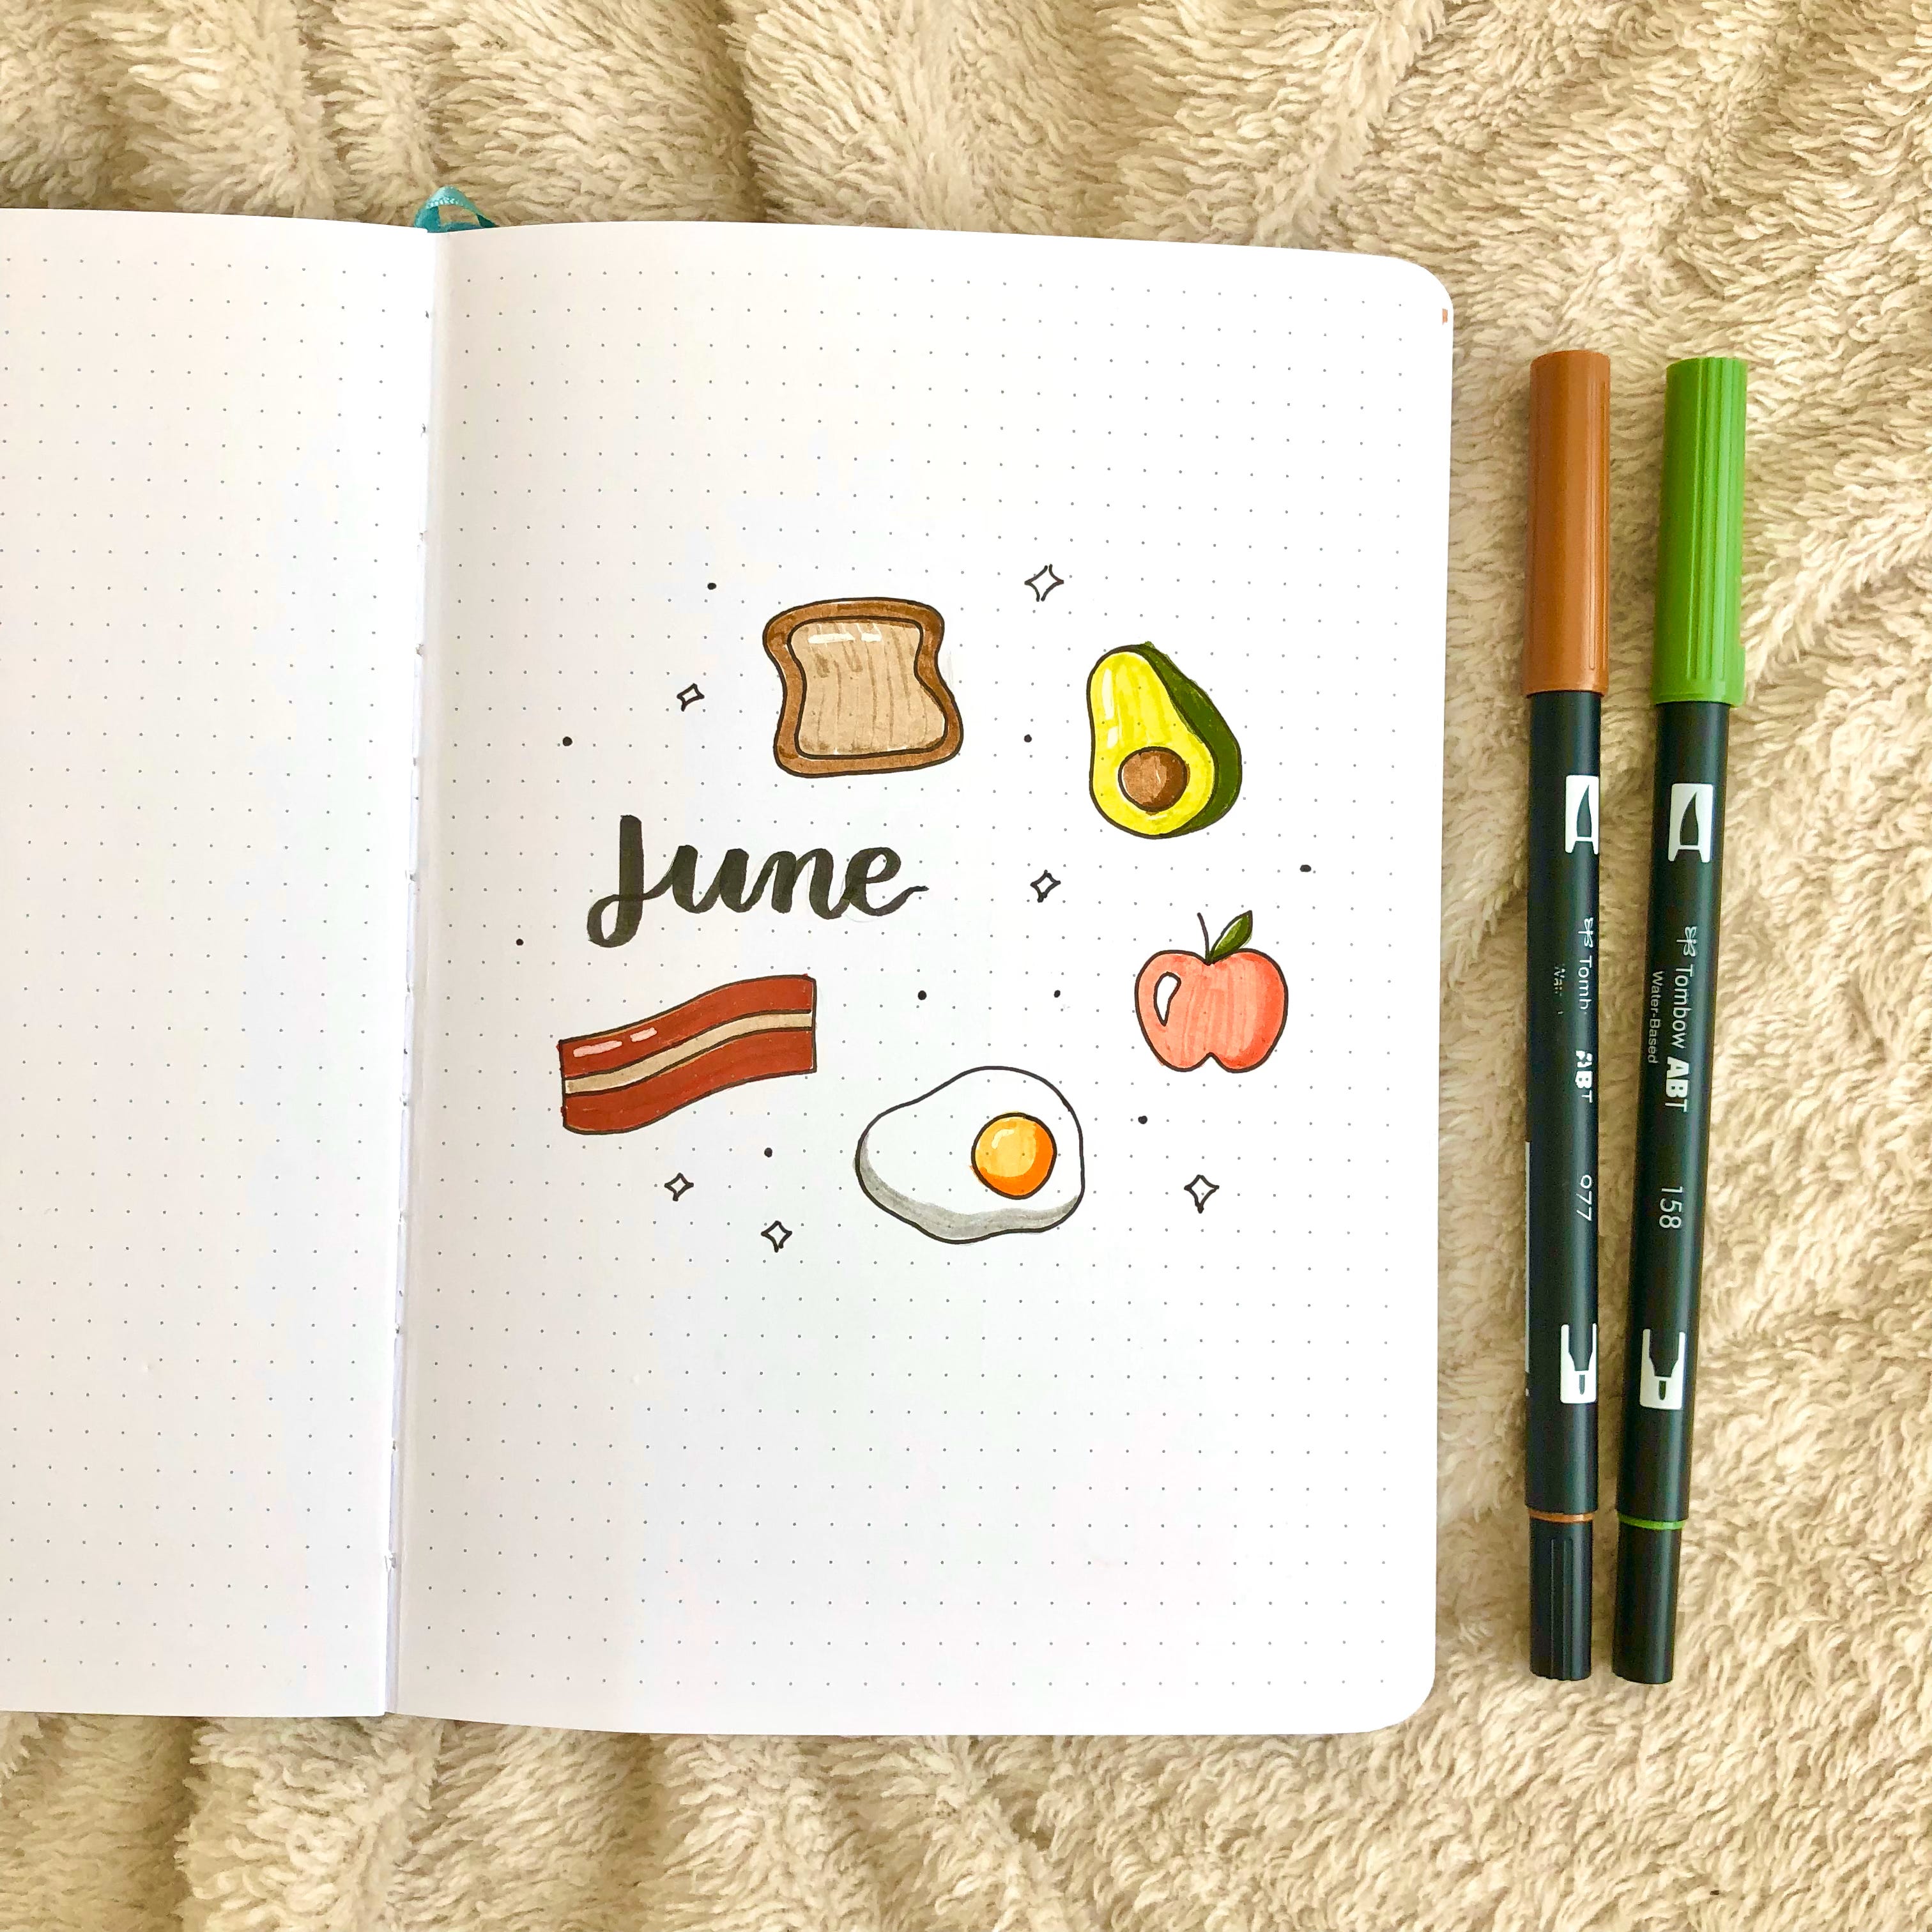 June
Tombow ABT
977
Tombow ABT
Water-Based
158